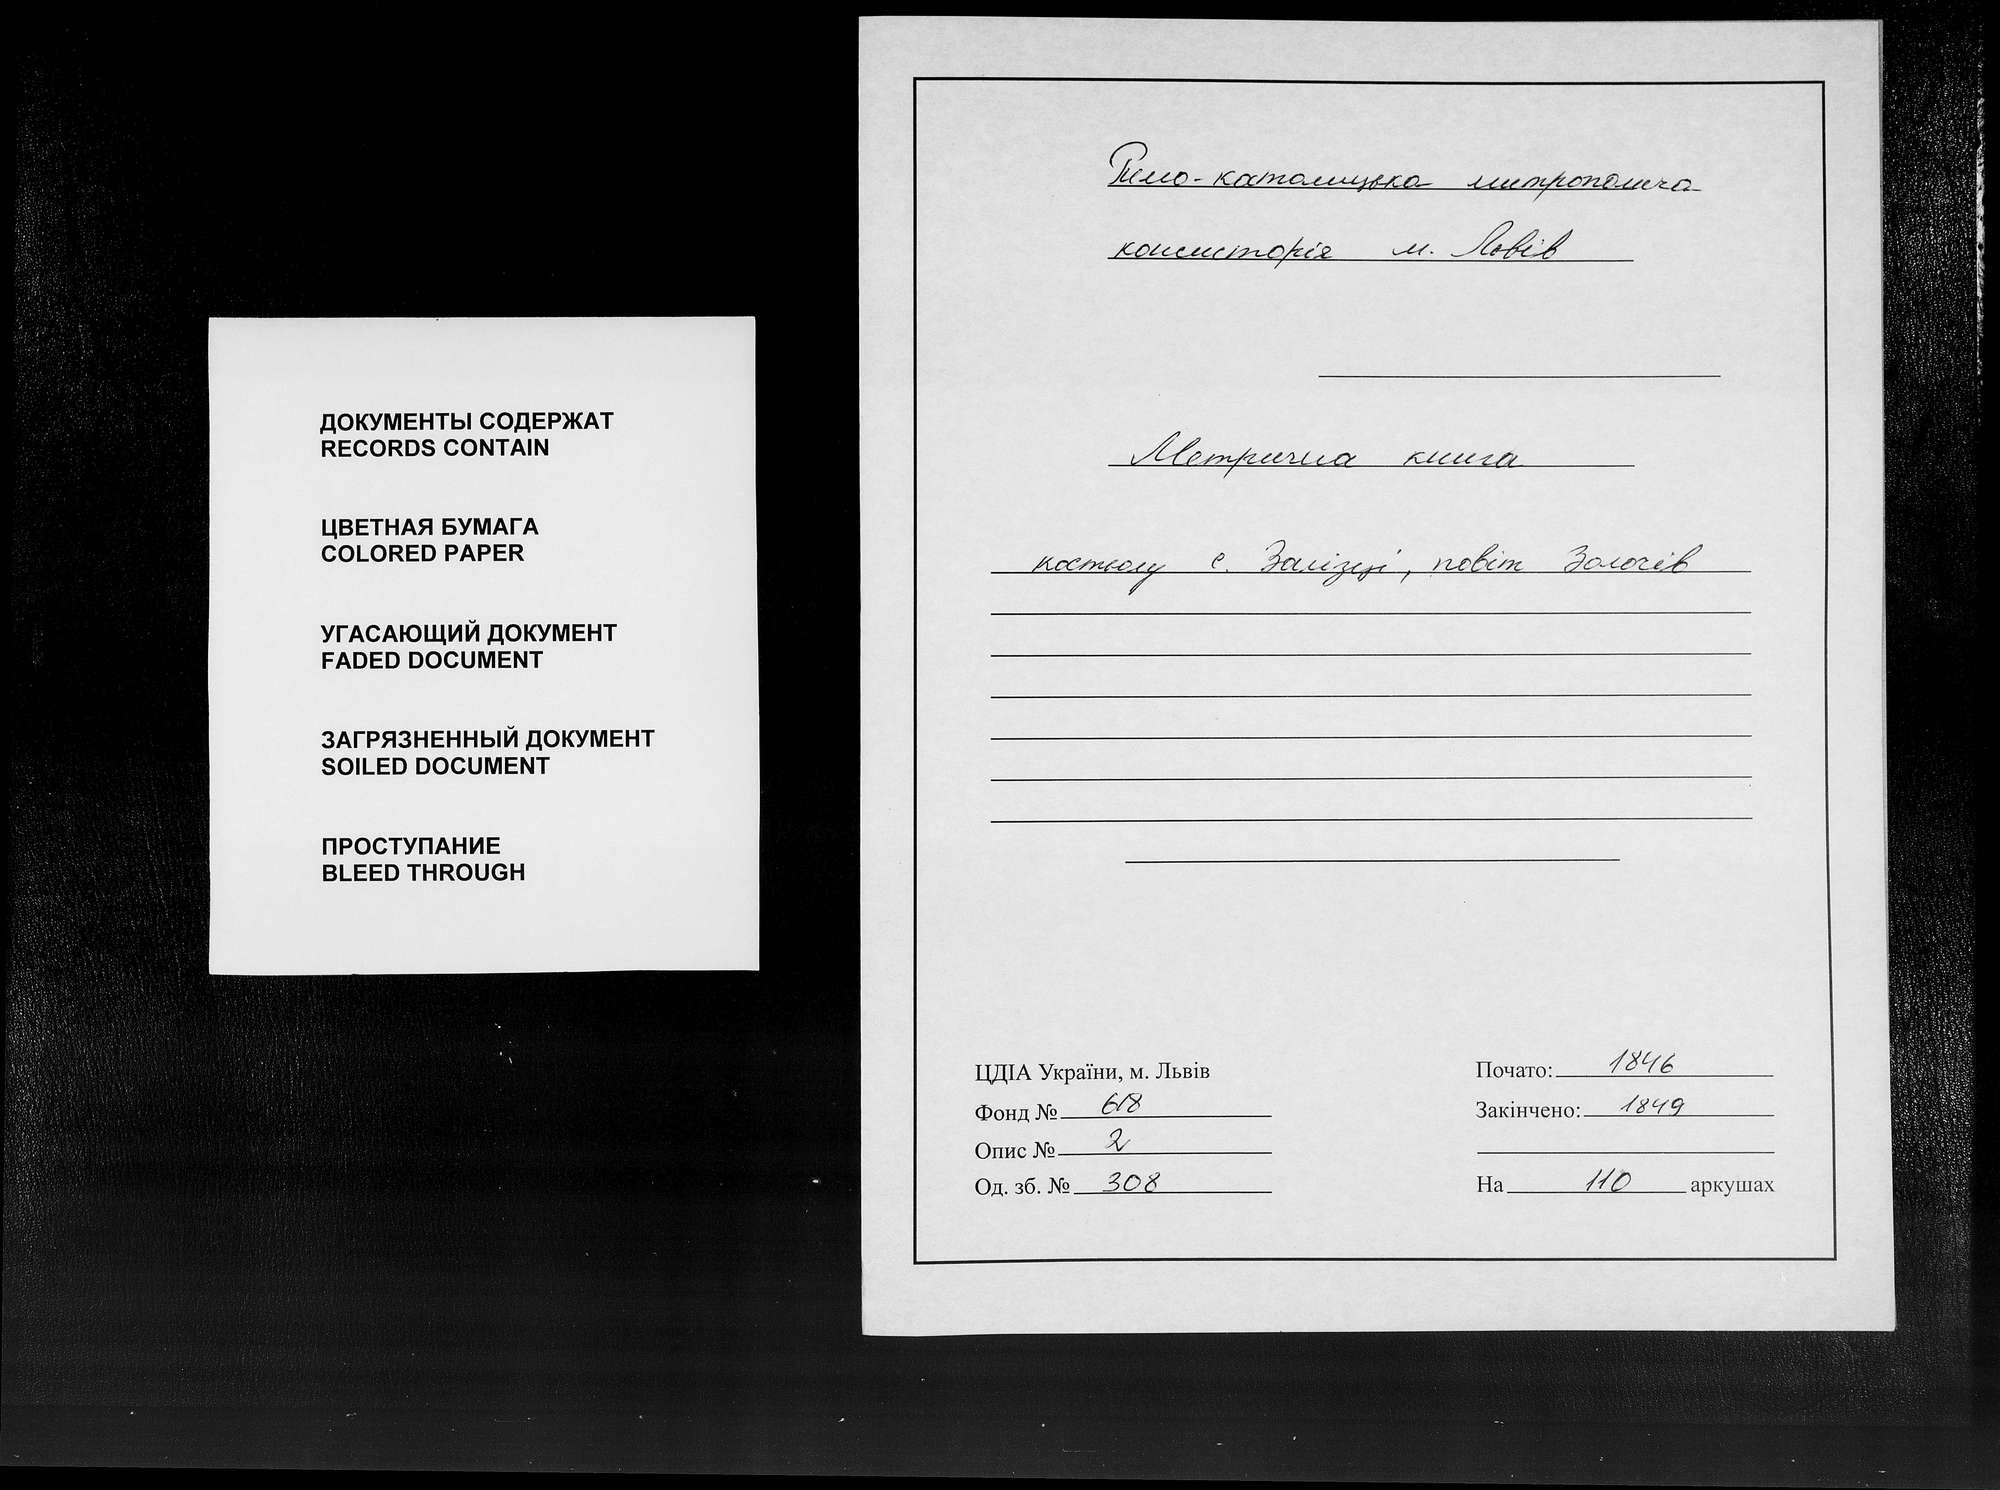 ДОКУМЕНТЫ СОДЕРЖАТ
RECORDS CONTAIN
ЦВЕТНАЯ БУМАГА
COLORED PAPER
УГАСАЮЩИЙ ДОКУМЕНТ
FADED DOCUMENT
ЗАГРЯЗНЕННЫЙ ДОКУМЕНТ
SOILED DOCUMENT
ПРОСТУПАНИЕ
BLEED THROUGH
Римо-католицька митрополича
консисторія м. Львів
Метрична книга
костьолу с. Залізці, повіт Золочів
ЦДІА України, м. Львів
Фонд № 618
Опис № 2
Од. зб. № 308
Почато: 1846
Закінчено: 1849
На 110 аркушах